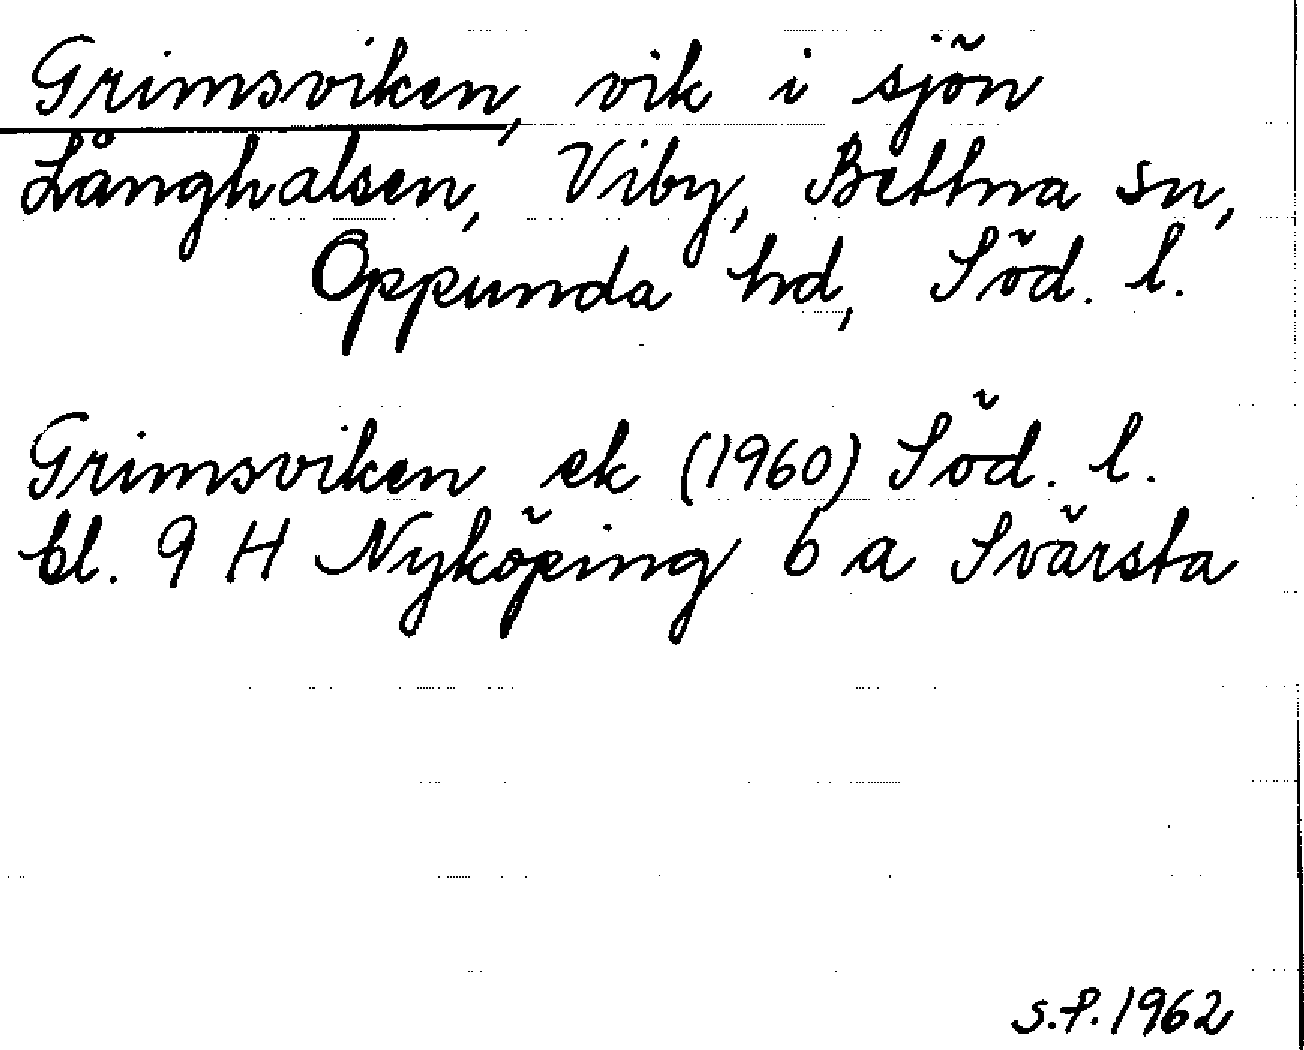 Grimsviken, vik i sjön
Långhalsen, Viby, Bettna sn,
Oppunda hd, Söd. l.
Grimsviken ek (1960) Söd. l.
bl. 9 H Nyköping 6 a Svärsta
S.P. 1962